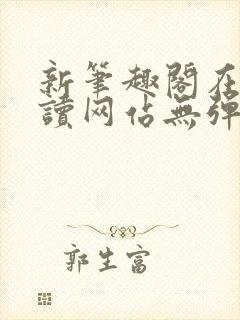 新筆趣閣在
讀网佔無彈
郭生富